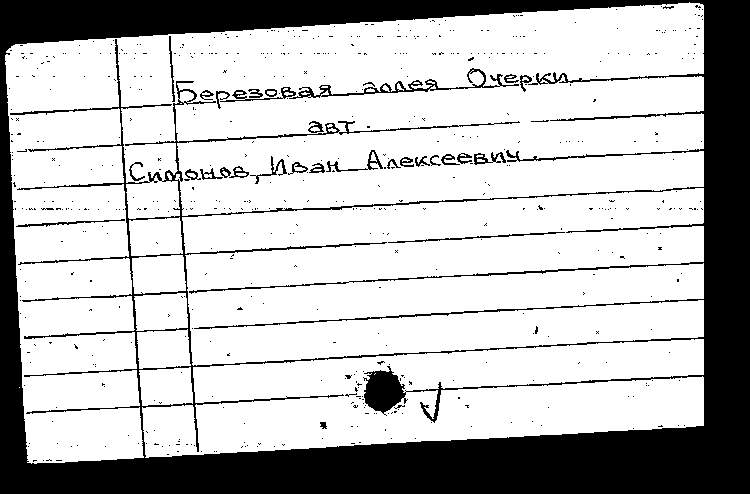 Березовая аллея Очерки.
авт.
Симонов, Иван Алексеевич.